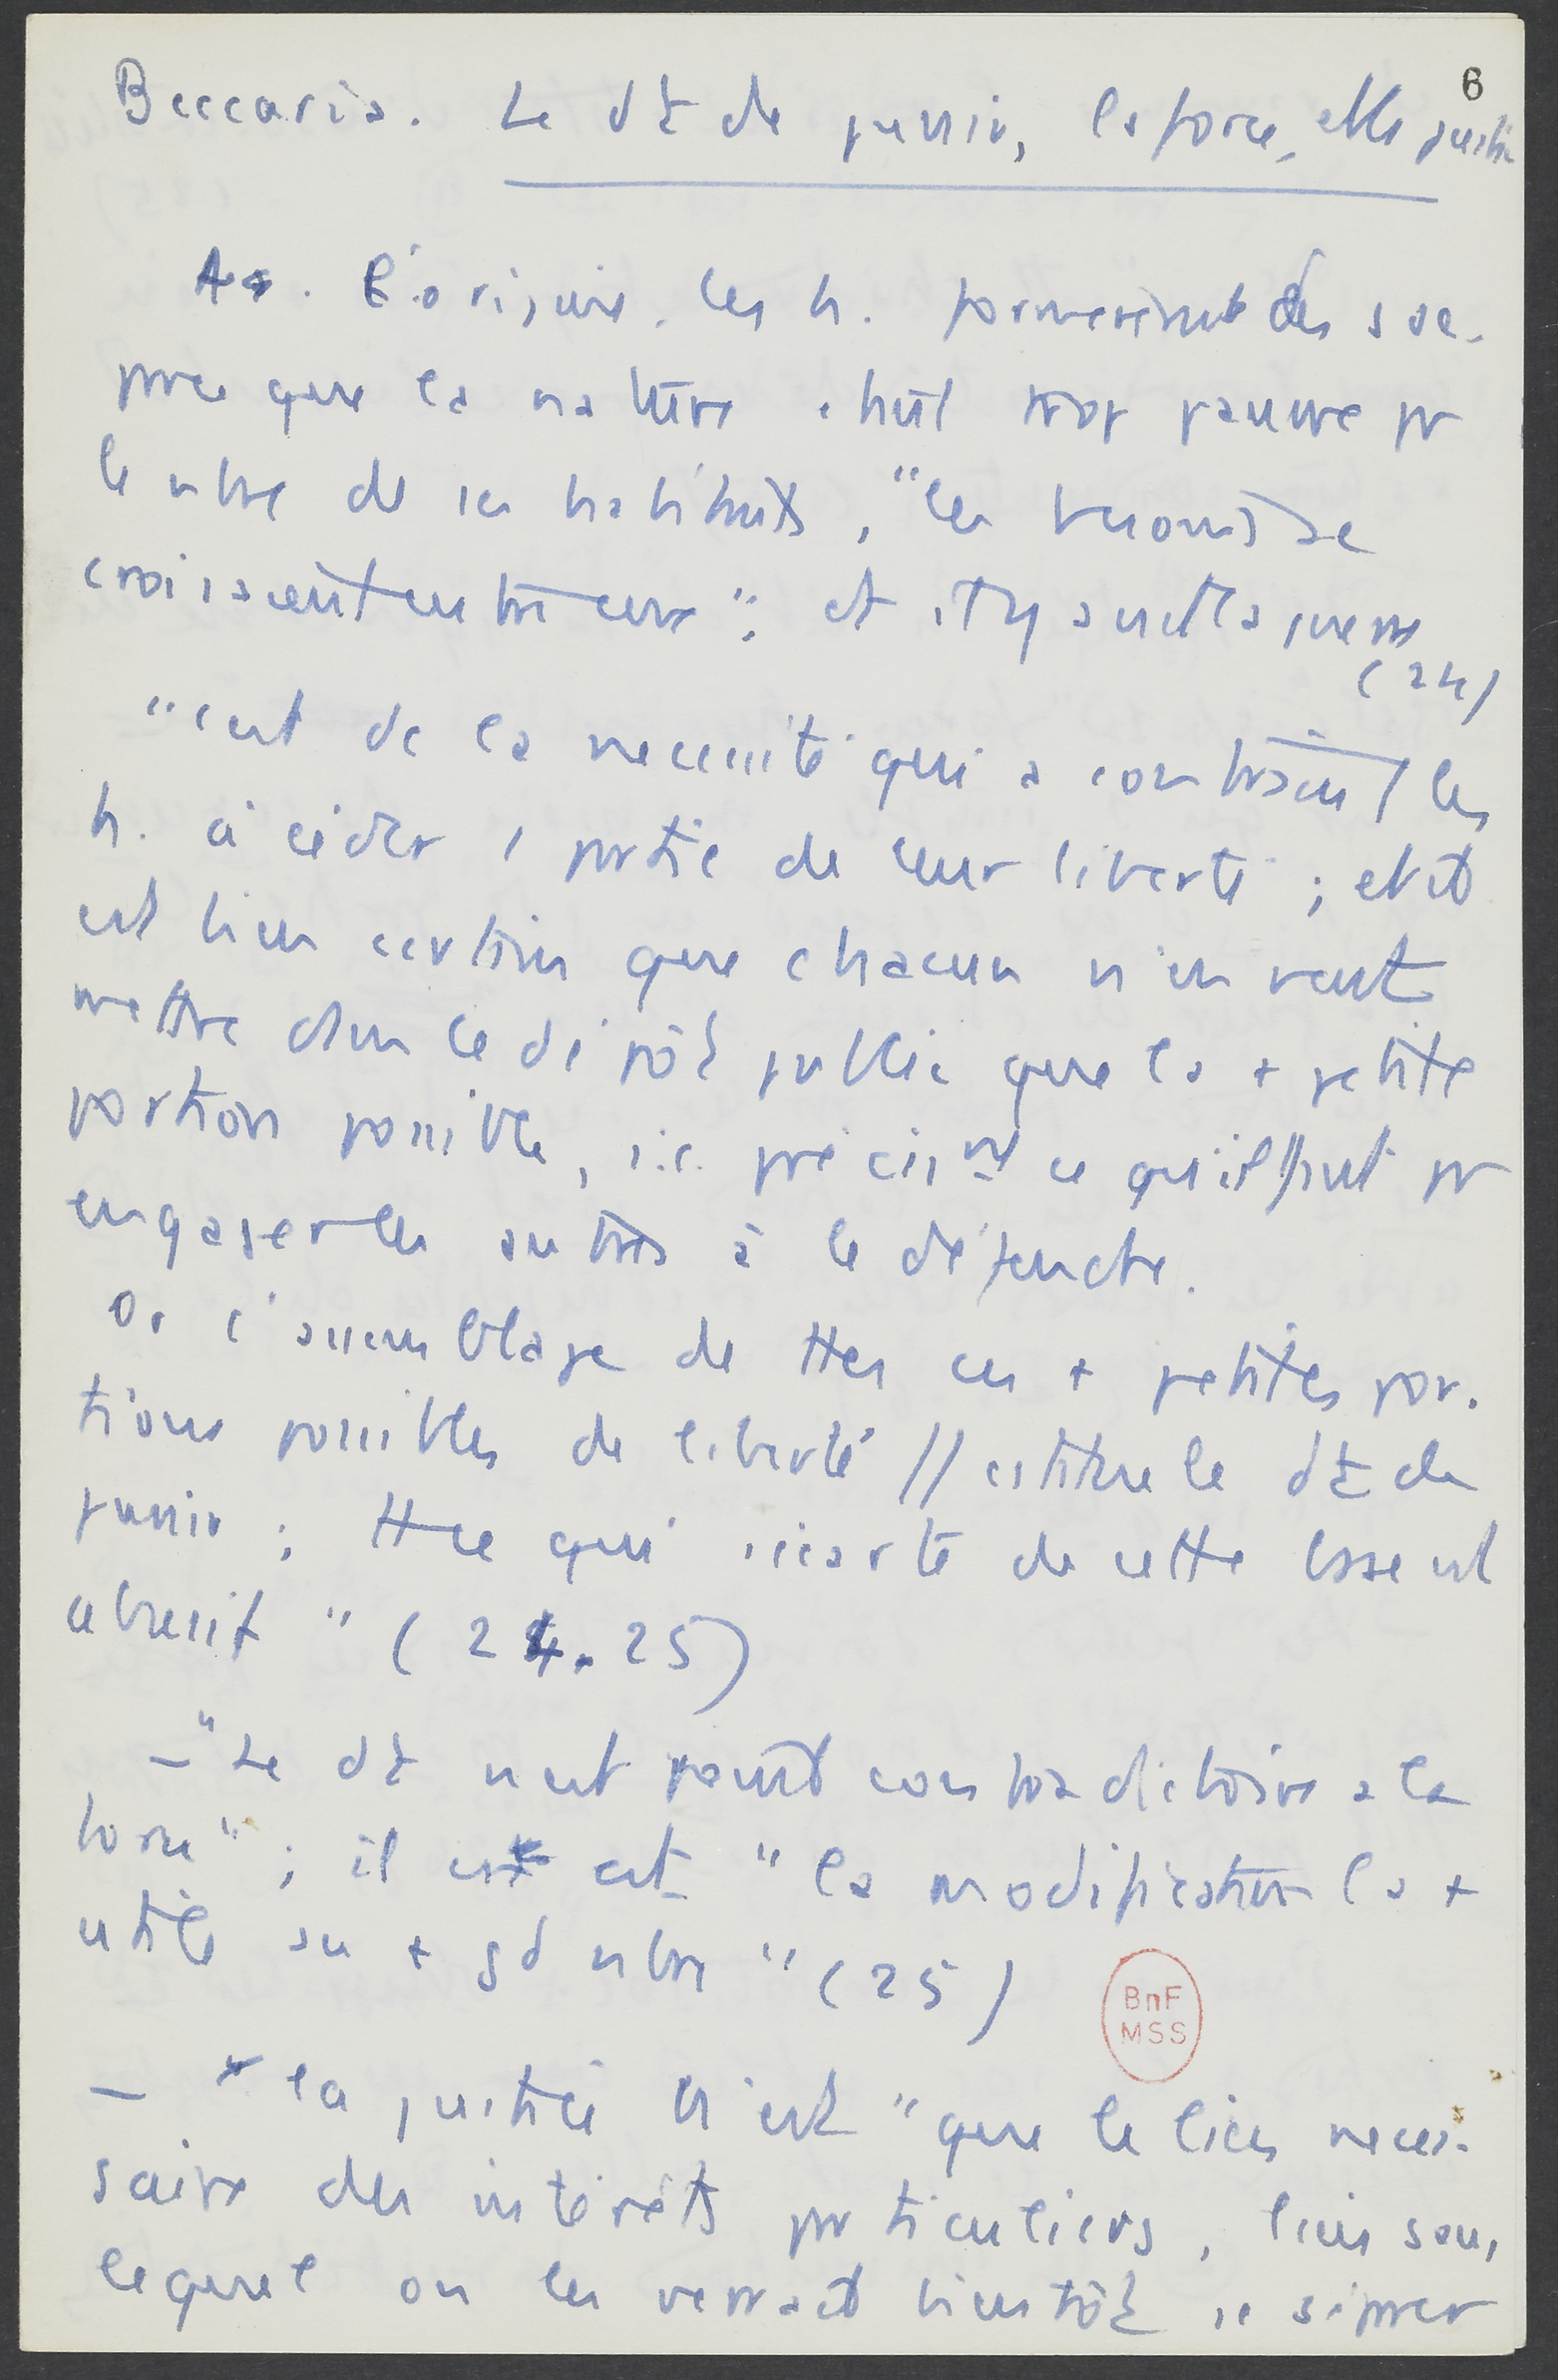 6
Beccaria. Le dt de punir, la force, et la justice
A l'origine, les h. formerent des soc.
pce que la nature était trop pauvre pr
le nbre de ses habitants, "les besoins se
croisaient entre eux"; et il y a eu la guerre
(24)
"c'est de la necessité qui a contraint les
h. à céder 1 partie de leur liberté ; et il
est bien certain que chacun n'en veut
mettre dans le dépôt public que la + petite
portion possible, i.e. précismt ce qu'il faut pr
engager les autres à le défendre.
Or l'assemblage de ttes ces + petites por-
tions possibles de liberté // constitue le dt de
punir ; tt ce qui s'écarte de cette base est
abusif" (24.25)
– "Le dt n'est point contradictoire à la
force" ; il est "la modification la +
utile au + gd nbre" (25)
BnF
MSS
– la justice n'est "que le lien neces-
saire des intérêts particuliers, lien sans
lequel on les verrait bientôt se séparer